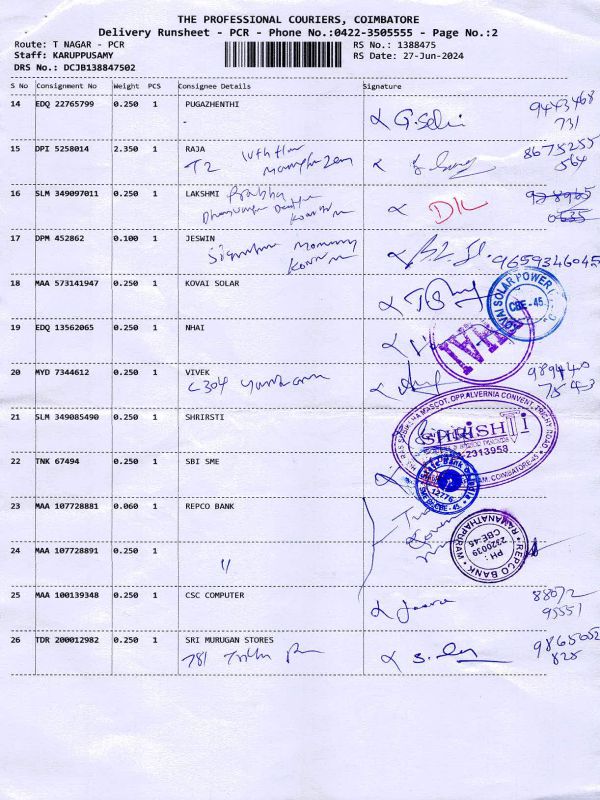 THE PROFESSIONAL COURIERS, COIMBATORE
Delivery Runsheet - PCR - Phone No.:0422-3505555 - Page No.:2
Route: T NAGAR - PCR
RS No.: 1388475
Staff: KARUPPUSAMY
RS Date: 27-Jun-2024
DRS No.: DCJB138847502
S No Consignment No Weight PCS Consignee Details Signature
14 EDQ 22765799 0.250 1 PUGAZHENTHI
-
9443468
731
15 DPI 5258014 2.350 1 RAJA
T2
8675255
564
16 SLM 349097011 0.250 1 LAKSHMI Prabha
17 DPM 452862 0.100 1 JESWIN
Signature
9659346045
18 MAA 573141947 0.250 1 KOVAI SOLAR
KOVAI SOLAR POWER
CBE-45
19 EDQ 13562065 0.250 1 NHAI
NHAI
20 MYD 7344612 0.250 1 VIVEK
C304
98944 0
7543
21 SLM 349085490 0.250 1 SHRIRSTI
SHRISHTI
2313958
COIMBATORE-45
22 TNK 67494 0.250 1 SBI SME
State Bank of India
12776
23 MAA 107728881 0.060 1 REPCO BANK
REPCO BANK
RAMANATHAPURAM
CBE-45
PH :
2320039
24 MAA 107728891 0.250 1
"
25 MAA 100139348 0.250 1 CSC COMPUTER
88072
95551
26 TDR 200012982 0.250 1 SRI MURUGAN STORES
781
9865052
828